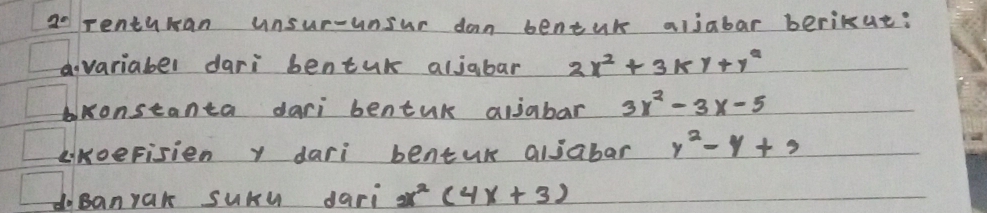 2. Tentukan unsur-unsur dan bentuk aljabar berikut:
a. variabel dari bentuk aljabar 2x² + 3xy + y²
b. Konstanta dari bentuk aljabar 3x² - 3x - 5
c. Koefisien y dari bentuk aljabar y² - y + 9
d. Banyak suku dari 2x² (4x + 3)